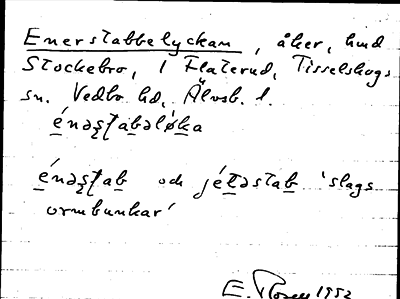 Enerstabbelyckan, åker, hmd
Stockebo, 1 Flaterud, Tisselskogs
sn. Vedbo hd, Älvsb. l.
énəs̨tabəlø̨ka
énəs̨tab och jétəstab 'slags
ormbunkar'
E. 1952